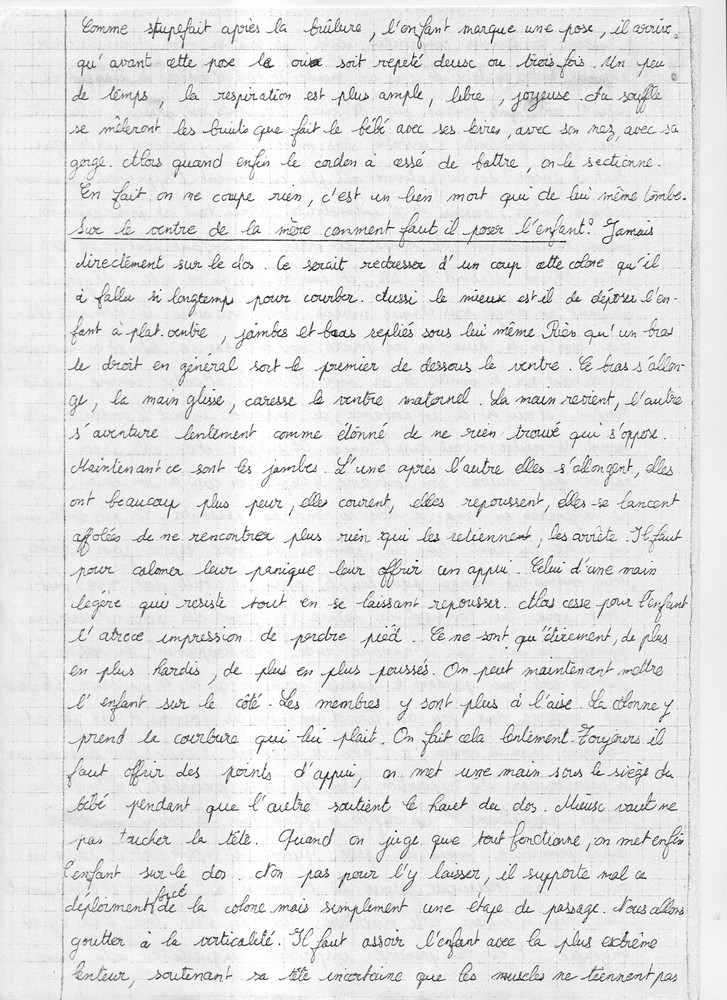 Comme stupefait après la brûlure, l'enfant marque une pose, il arrive
qu'avant cette pose le cri soit repeté deux ou trois fois. Un peu
de temps, la respiration est plus ample, libre, joyeuse. Au souffle
se mêleront les bruits que fait le bébé avec ses lèvres, avec son nez, avec sa
gorge. Alors quand enfin le cordon à cessé de battre, on le sectionne.
En fait on ne coupe rien, c'est un lien mort qui de lui même tombe.
Sur le ventre de la mère comment faut il poser l'enfant? Jamais
directement sur le dos. Ce serait redresser d'un coup cette colone qu'il
à fallu si longtemp pour courber. Aussi le mieux est il de déposer l'en-
fant à plat. ventre, jambes et bras repliés sous lui même. Puis qu'un bras
le droit en général sort le premier de dessous le ventre. Ce bras s'allon-
ge, la main glisse, caresse le ventre maternel. La main revient, l'autre
s'aventure lentement comme étonné de ne rien trouvé qui s'oppose.
Maintenant ce sont les jambes. L'une après l'autre elles s'allongent, elles
ont beaucoup plus peur, elles courent, elles repoussent, elles se lancent
affolées de ne rencontrer plus rien qui les retiennent, les arrête. Il faut
pour calmer leur panique leur offrir un appui. Celui d'une main
légère qui resiste tout en se laissant repousser. Alors cesse pour l'enfant
l'atroce impression de perdre pied. Ce ne sont qu'étirement, de plus
en plus hardis, de plus en plus poussés. On peut maintenant mettre
l'enfant sur le côté. Les membres y sont plus à l'aise. La colonne y
prend la courbure qui lui plait. On fait cela lentement. Toujours il
faut offrir des points d'appui, on met une main sous le siège du
bébé pendant que l'autre soutient le haut du dos. Mieux vaut ne
pas toucher la tête. Quand on juge que tout fonctionne, on met enfin
l'enfant sur le dos. Non pas pour l'y laisser, il supporte mal ce
déploiment forcé de la colone mais simplement une étape de passage. Nous allons
goutter à la verticalité. Il faut assoir l'enfant avec la plus extrême
lenteur, soutenant sa tête incertaine que les muscles ne tiennent pas